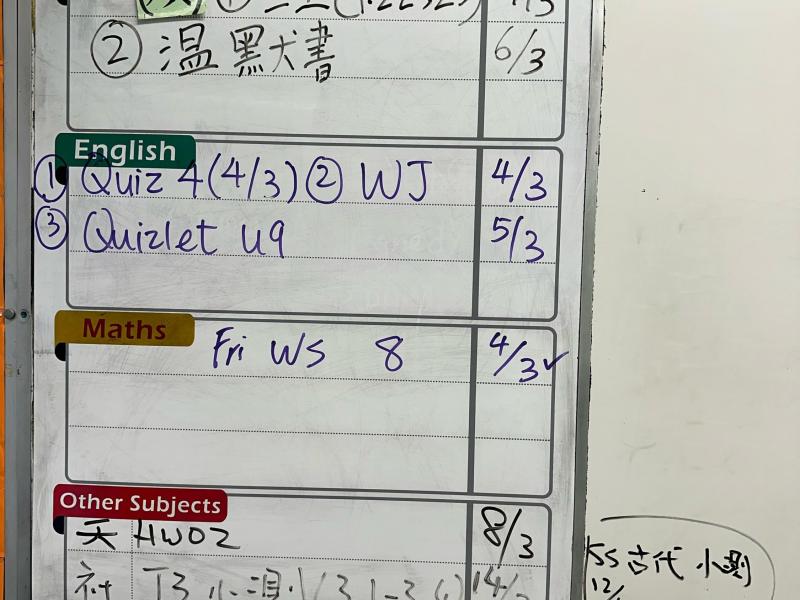 ② 溫 默犬書 6/3
English
① Quiz 4(4/3) ② WJ 4/3
③ Quizlet u9 5/3
Maths
Fri WS 8 4/3✓
Other Subjects
天 HW02 8/3
KSS 古代 小測
12/